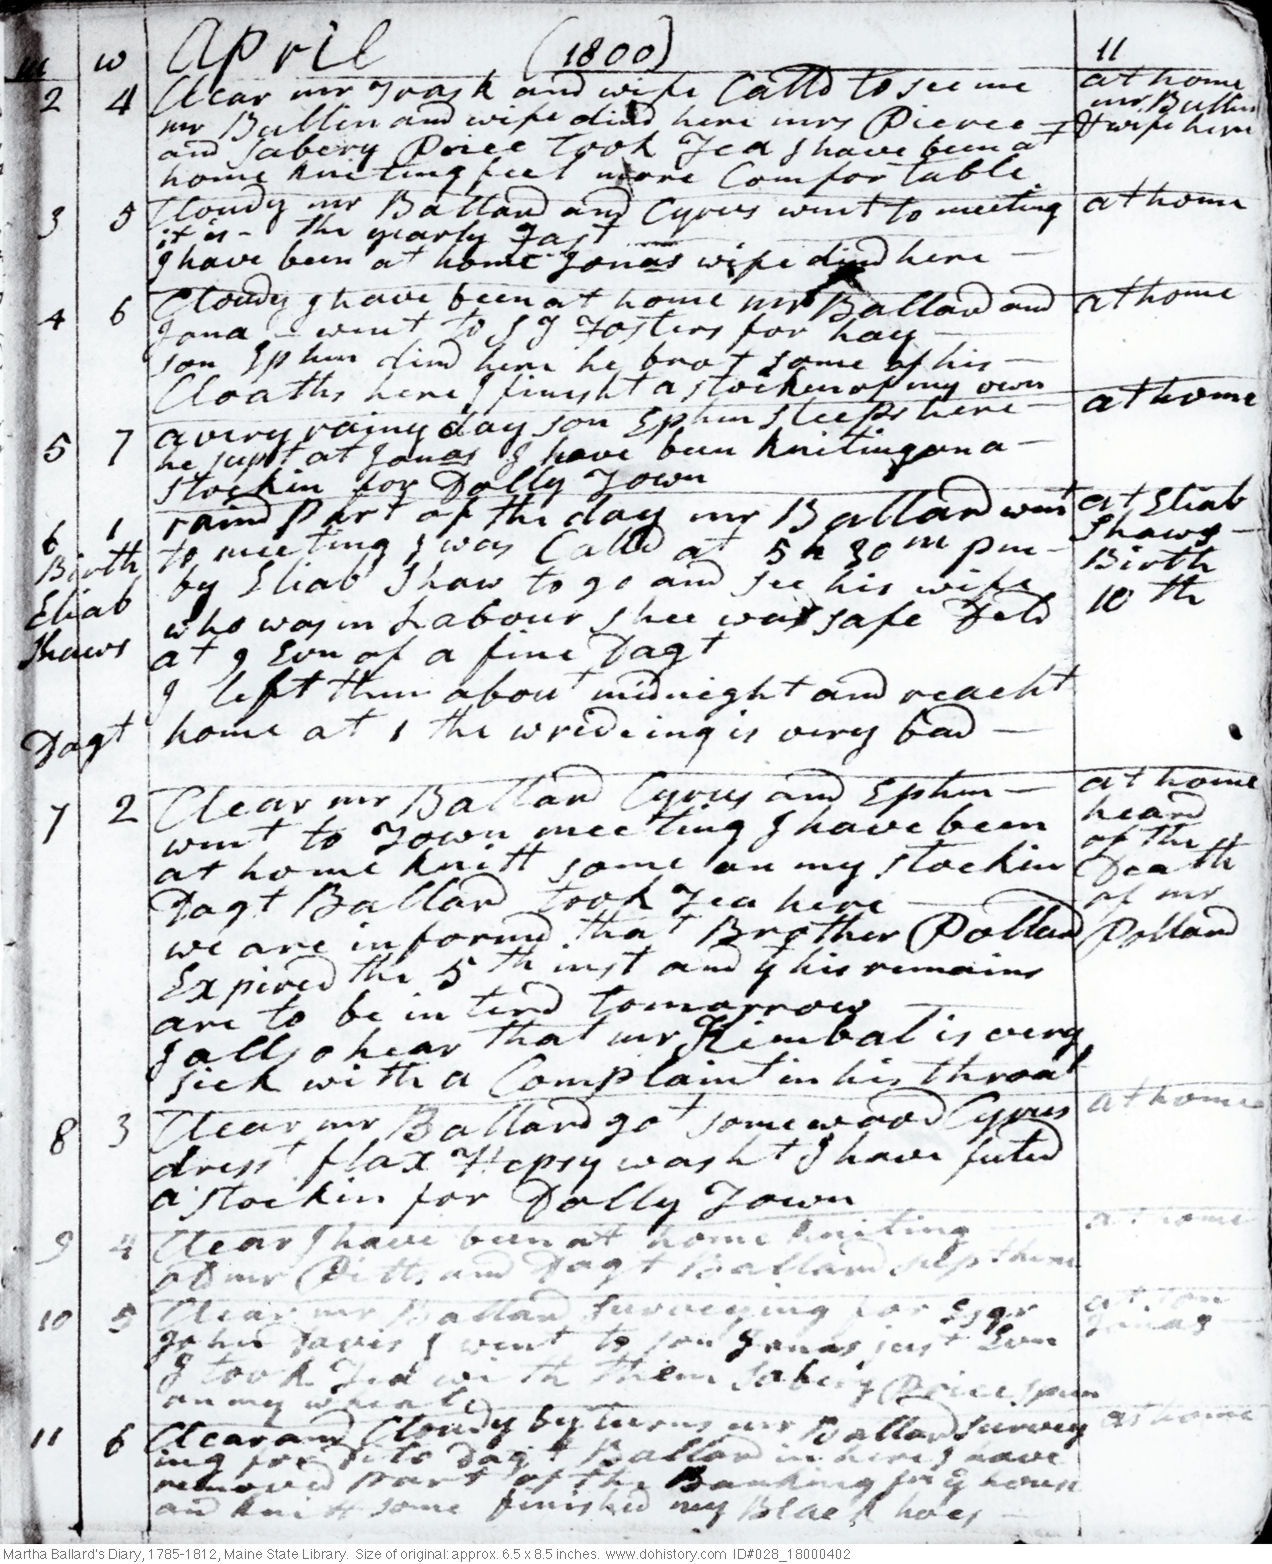 m w April (1800) 11
2 4 Clear mr Trask and wife Calld to see me at home
mr Bullin and wife dind here mrs Pierce mr Bullin
and Sabery Price took Tea I have been at & wife here
home kniting feel more Comfortable
3 5 Cloudy mr Ballard and Cyrus went to meeting at home
it is - the yearly Fast
I have been at home Jonas wife dind here
4 6 Cloudy I have been at home mr Ballard and at home
Jona went to S J Fosters for hay
son Ephm dind here he brot some of his
Cloaths here I finisht a stockin of my own
5 7 a very rainy day son Ephm sleeps here at home
he supt at Jonas I have been kniting on a
stockin for Dolly Town
6 1 raind Part of the day mr Ballard went at Eliab
Birth to meeting I was Calld at 5 h 30 m pm Shaws
Eliab by Eliab Shaw to go and see his wife Birth
Shaws who was in Labour shee was safe Deld 10th
at 9 Evn of a fine Dagt
I left them about midnight and reacht
Dagt home at 1 the wrideing is very bad
7 2 Clear mr Ballard Cyrus and Ephm at home
went to Town meeting I have been heard
at home knitt some on my stockin of the
Dagt Ballard took Tea here Death
we are informd that Brother Pollard of mr
Expired the 5th inst and y his remains Pollard
are to be interd tomorrow
I allso hear that mr Kimbal is very
sick with a Complaint in his throat
8 3 Clear mr Ballard got some wood Cyrus at home
dresst flax Hepsy washt I have futed
a stockin for Dolly Town
9 4 Clear I have been at home kniting at home
mr Pitts and Dagt Ballard
10 5 Clear mr Ballard surveying for Esqr at son
John Davis I went to son Jonas just Evn Jonas
I took Tea with them Sabery Price spun
on my wheal
11 6 Clear and Cloudy by turns mr Ballard survey at home
ing for Dagt Ballard in here I have
removed part of the Banking for y house
and knitt some finished my Black hoes
Martha Ballard's Diary, 1785-1812, Maine State Library. Size of original: approx. 6.5 x 8.5 inches. www.dohistory.com ID#028_18000402